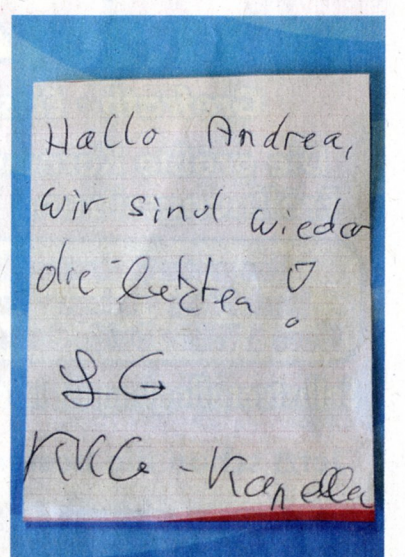 Hallo Andrea,
wir sind wieder
die letzten!
LG
KKG-Kapelle